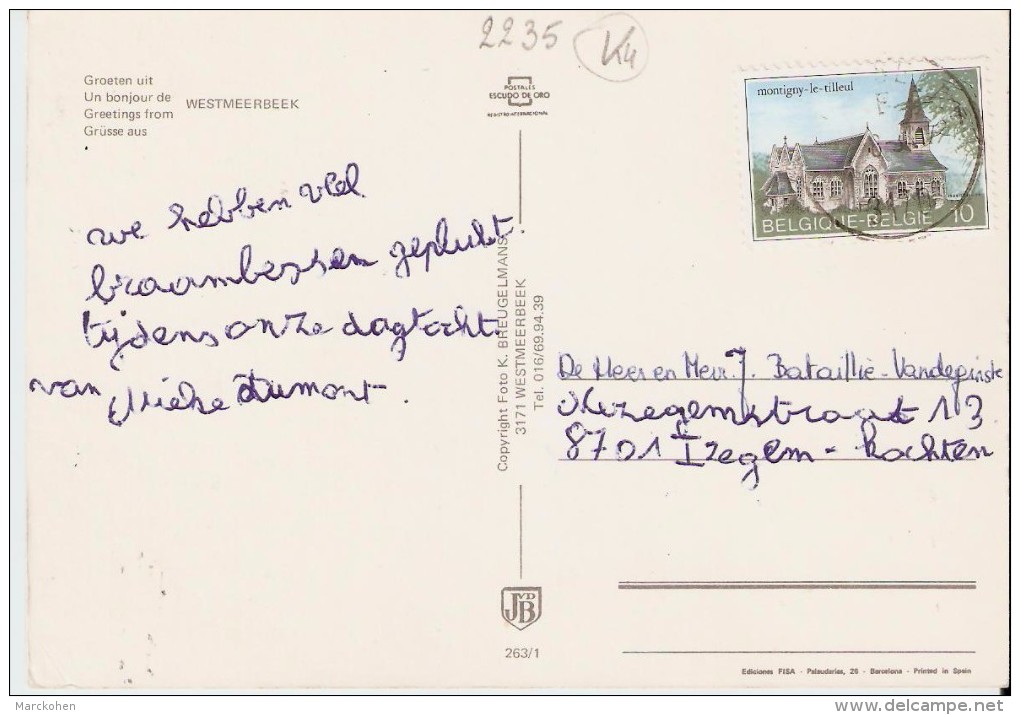 2235 K4
Groeten uit
Un bonjour de
Greetings from
Grüsse aus
WESTMEERBEEK
POSTALES
ESCUDO DE ORO
REGISTRO INTERNACIONAL
montigny-le-tilleul
BELGIQUE-BELGIE 10
we hebben veel
braambessen geplukt.
tijdens onze dagtocht.
van Mieke Dumont.
Copyright Foto K. BREUGELMANS
3171 WESTMEERBEEK
Tel. 016/69.94.39
De Heer en Mevr. J. Bataillie-Vandeginste
straat 13
8701 Izegem - Kachten
JVDB
263/1
Ediciones FISA - Palaudarias, 26 - Barcelona - Printed in Spain
Marckohen
delcampe.net